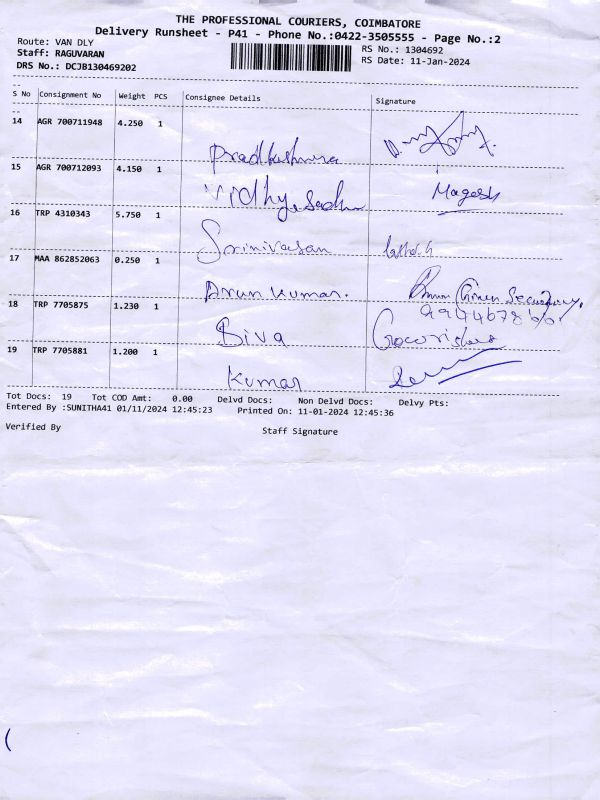 THE PROFESSIONAL COURIERS, COIMBATORE
Delivery Runsheet - P41 - Phone No.:0422-3505555 - Page No.:2
Route: VAN DLY
RS No.: 1304692
Staff: RAGUVARAN
RS Date: 11-Jan-2024
DRS No.: DCJB130469202
S No Consignment No Weight PCS Consignee Details Signature
14 AGR 700711948 4.250 1
15 AGR 700712093 4.150 1 Magesh
16 TRP 4310343 5.750 1
Srinivasan
17 MAA 862852063 0.250 1
Arun kumar.
18 TRP 7705875 1.230 1
Siva
19 TRP 7705881 1.200 1
Kumar
Tot Docs: 19 Tot COD Amt: 0.00 Delvd Docs: Non Delvd Docs: Delvy Pts:
Entered By :SUNITHA41 01/11/2024 12:45:23 Printed On: 11-01-2024 12:45:36
Verified By Staff Signature